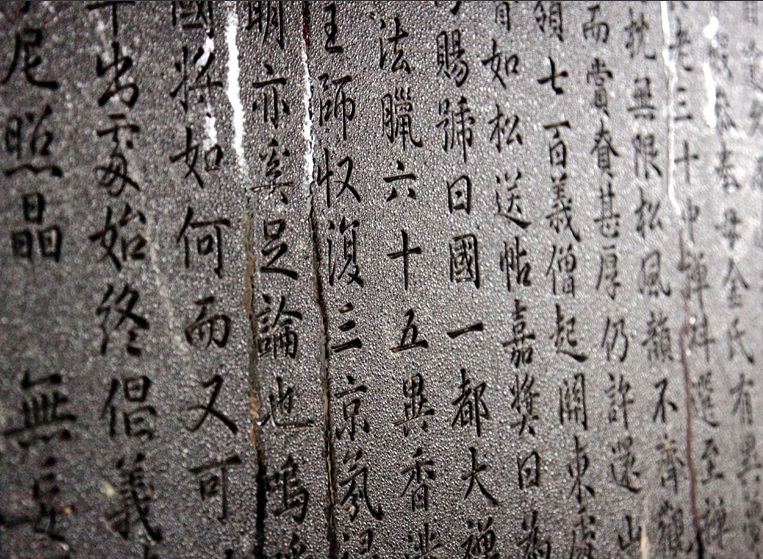 母金氏有異
老三十中禪科選至禪
枕無限松風韻不齊觀
而賞賚甚厚仍許還山
領七百義僧起關東
如松送帖嘉獎曰為
賜號曰國一都大禪
法臘六十五異香
王師收復三京氛
明亦奚足論也嗚
國將如何而又可
出處始終倡義
尼照晶 無